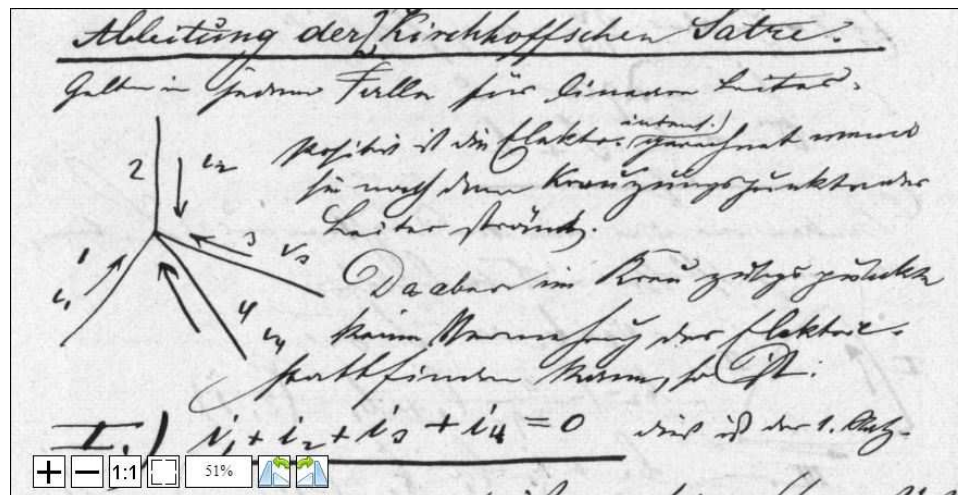 Ableitung der Kirchhoffschen Sätze.
Gelten in jedem Falle für lineare Leiter.
Positiv ist die Elektr. intens. gerechnet wenn
sie nach dem Kreuzungspunkte der
Leiter strömt.
Da aber im Kreuzungspunkte
keine Vermehrung der Elektric.
stattfinden kann, so ist:
I.) i₁ + i₂ + i₃ + i₄ = 0 dies ist der 1. Satz.
2 i₂
3 i₃
1 i₁
4 i₄
1:1 51%